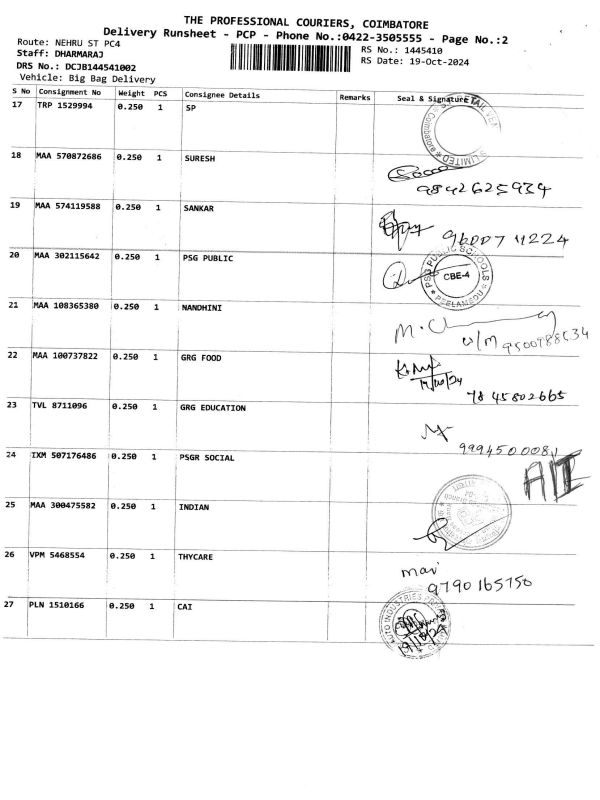 THE PROFESSIONAL COURIERS, COIMBATORE
Delivery Runsheet - PCP - Phone No.:0422-3505555 - Page No.:2
Route: NEHRU ST PC4
Staff: DHARMARAJ
DRS No.: DCJB144541002
Vehicle: Big Bag Delivery
RS No.: 1445410
RS Date: 19-Oct-2024
S No Consignment No Weight PCS Consignee Details Remarks Seal & Signature
17 TRP 1529994 0.250 1 SP
18 MAA 570872686 0.250 1 SURESH
9842625934
19 MAA 574119588 0.250 1 SANKAR
96007 11224
20 MAA 302115642 0.250 1 PSG PUBLIC
PSG PUBLIC SCHOOLS
CBE-4
PEELAMEDU
21 MAA 108365380 0.250 1 NANDHINI
22 MAA 100737822 0.250 1 GRG FOOD
19/10/24
78 45802665
23 TVL 8711096 0.250 1 GRG EDUCATION
24 IXM 507176486 0.250 1 PSGR SOCIAL
25 MAA 300475582 0.250 1 INDIAN
26 VPM 5468554 0.250 1 THYCARE
mari
9790165750
27 PLN 1510166 0.250 1 CAI
19/10/24